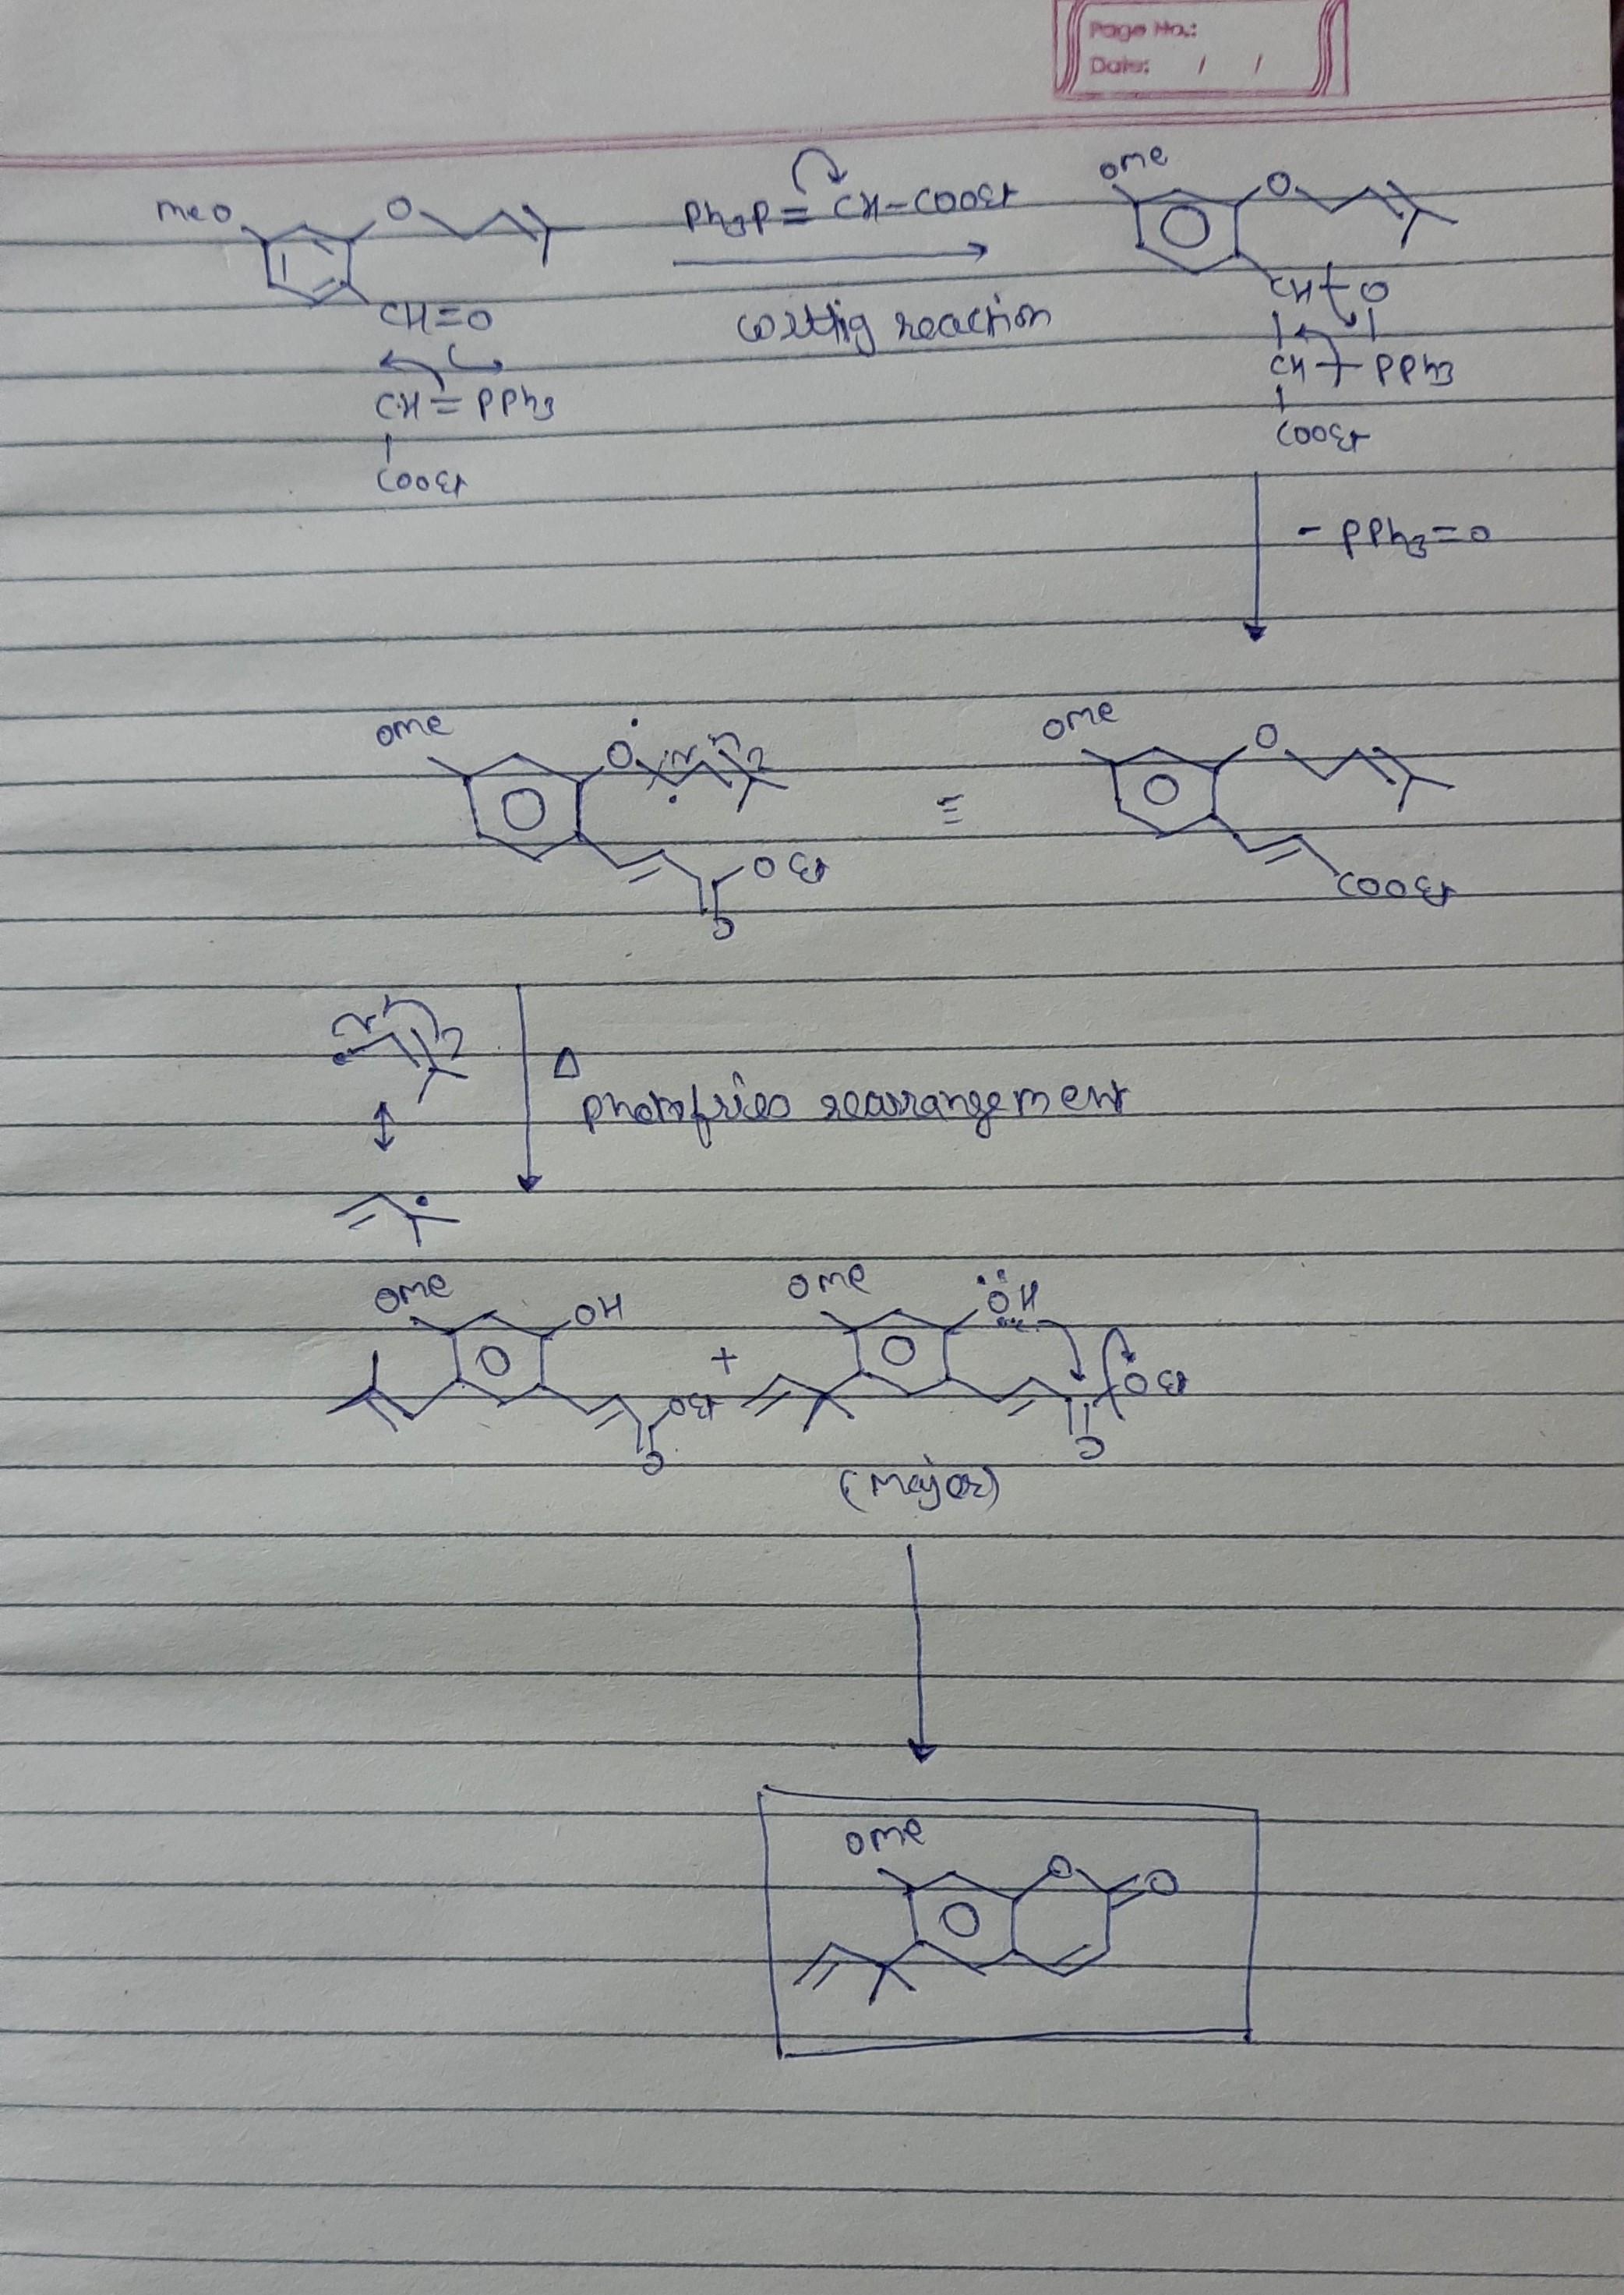 Page No.:
Date: / /
meO O Ph3P=CH-COOEt OMe O
CH=O wittig reaction CH O
CH=PPh3 CH PPh3
COOEt COOEt
- PPh3=O
OMe O ≡ OMe O
OEt COOEt
O
Δ
photofries rearrangement
OMe OH + OMe OH
OEt OEt
O O
(major)
OMe O O